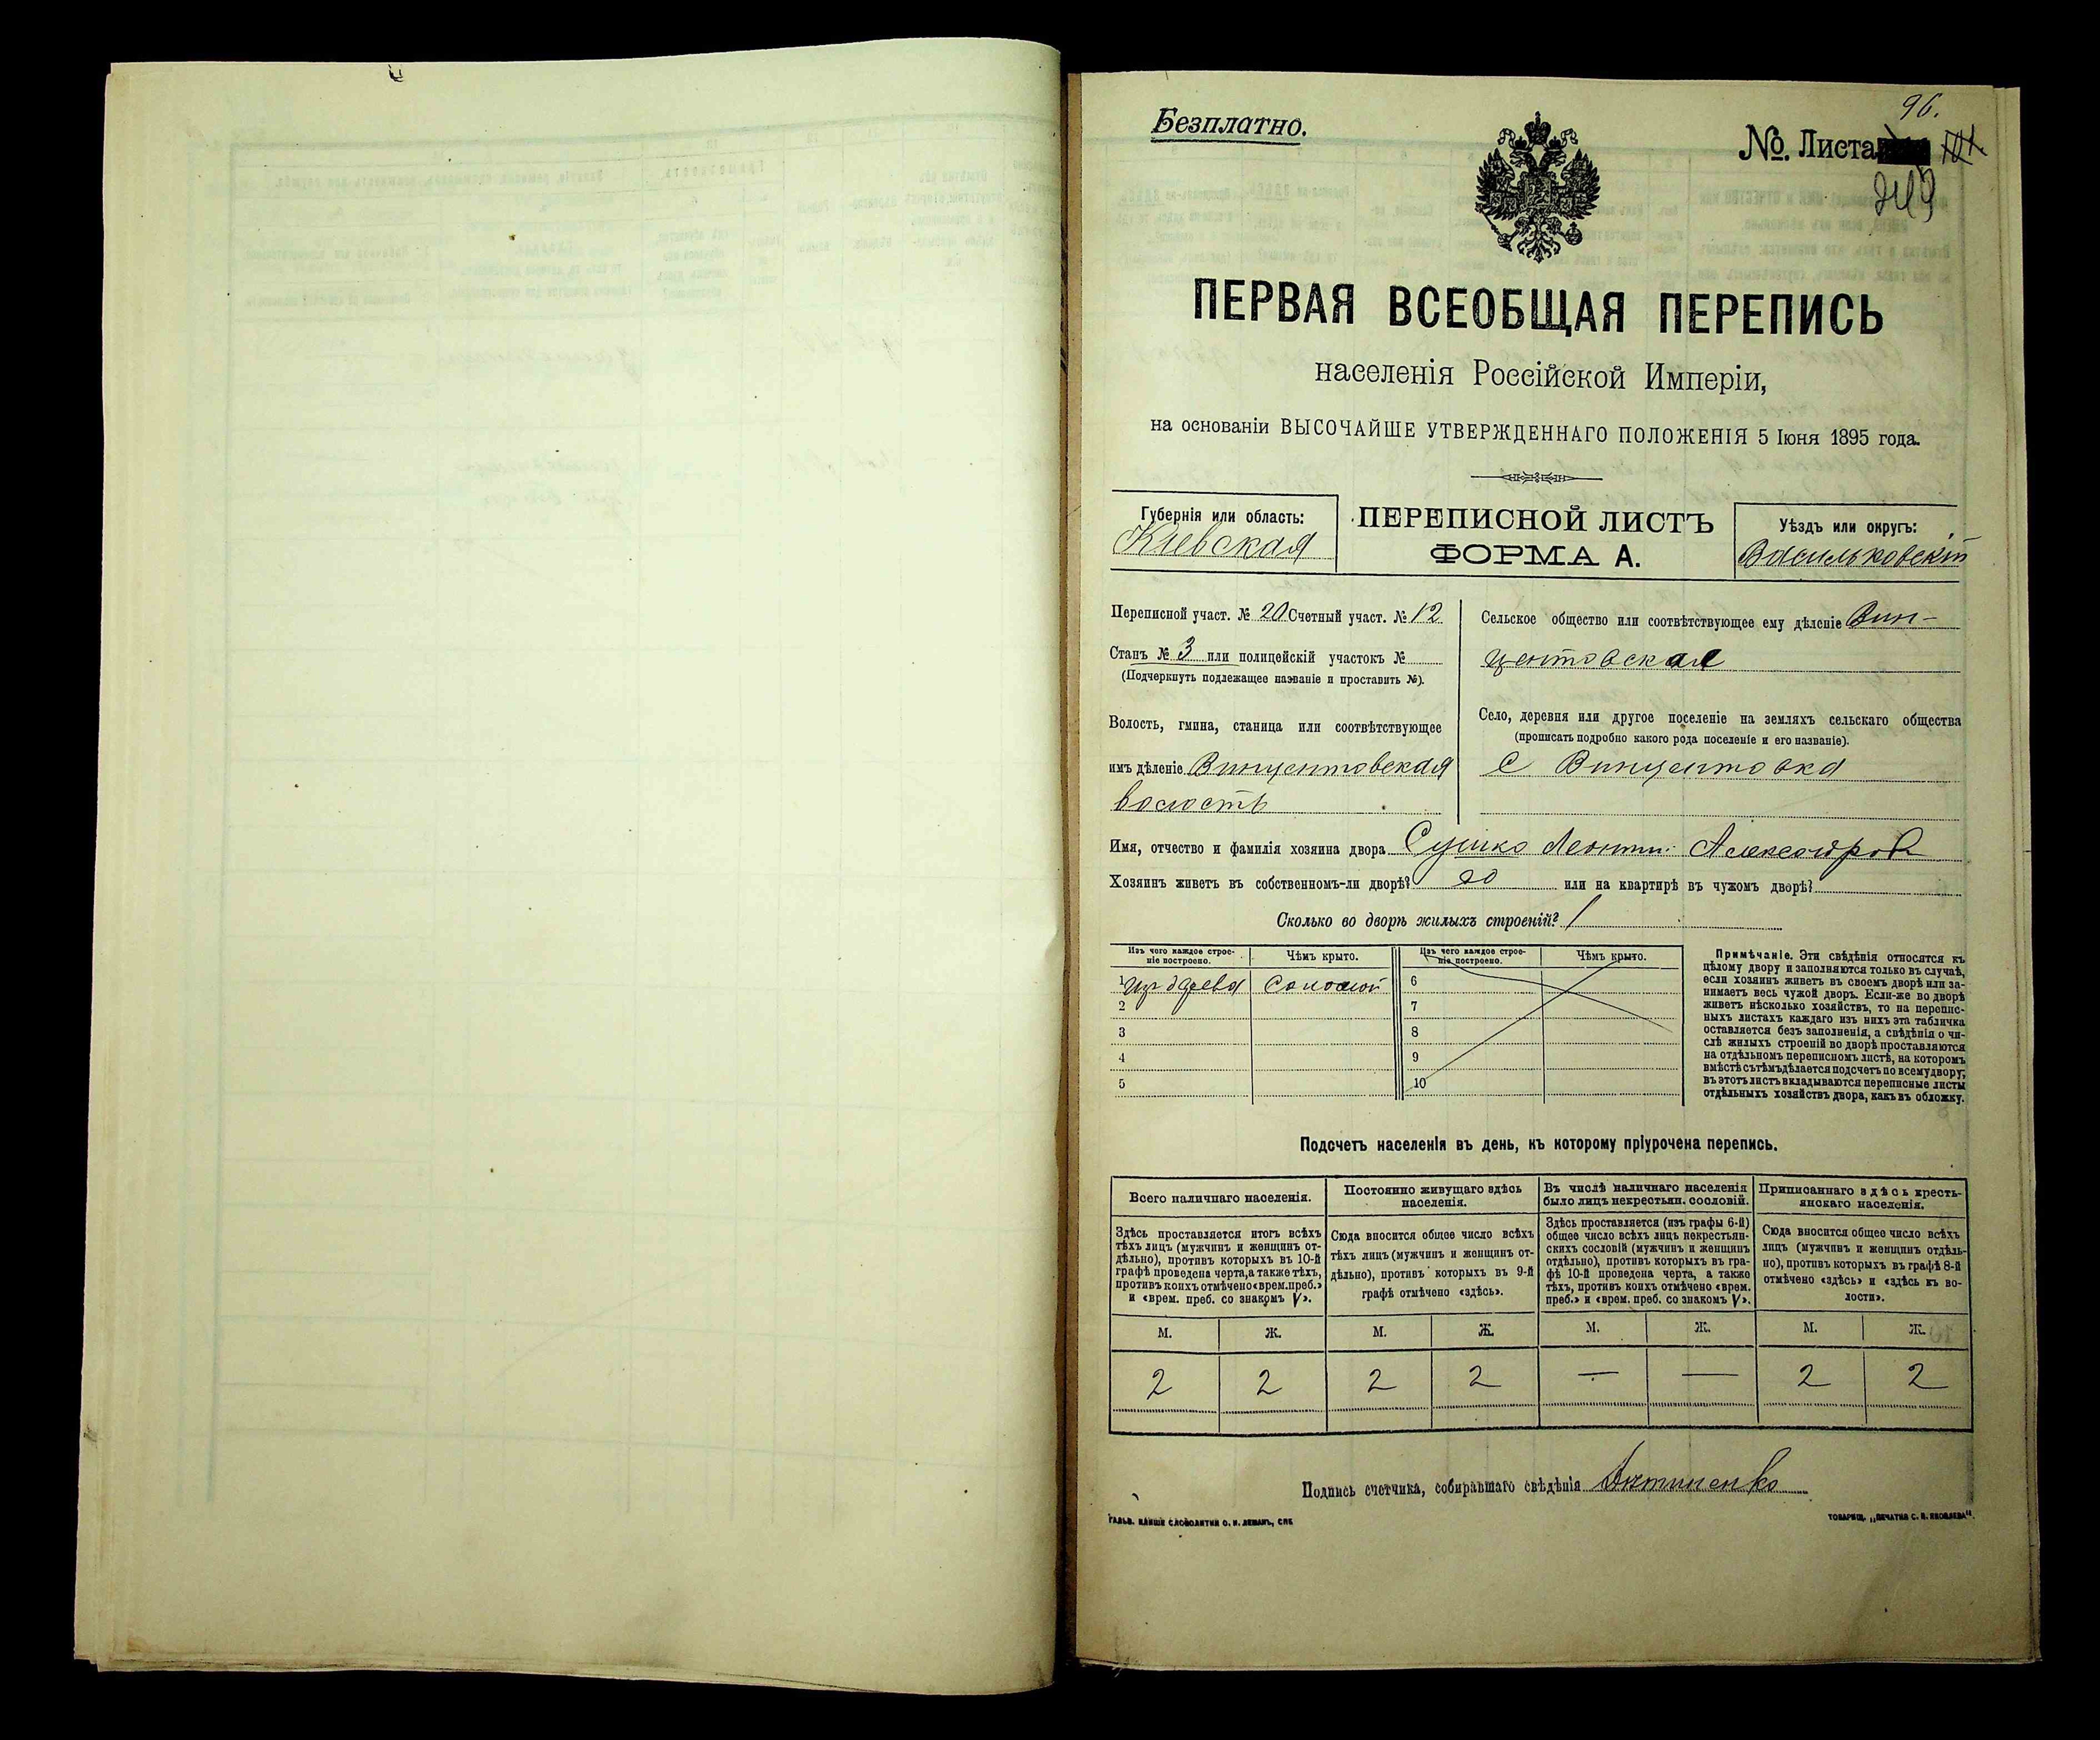 Безплатно.
96.
№ Листа
249
ПЕРВАЯ ВСЕОБЩАЯ ПЕРЕПИСЬ
населенія Россійской Имперіи,
на основаніи ВЫСОЧАЙШЕ УТВЕРЖДЕННАГО ПОЛОЖЕНІЯ 5 Іюня 1895 года.
Губернія или область:
Кіевская
ПЕРЕПИСНОЙ ЛИСТЪ
ФОРМА А.
Уѣздъ или округъ:
Васильковскій
Переписной участ. № 20 Счетный участ. № 12
Станъ № 3 или полицейскій участокъ №
(Подчеркнуть подлежащее названіе и проставить №).
Волость, гмина, станица или соотвѣтствующее
имъ дѣленіе Винцентовская
волость
Сельское общество или соотвѣтствующее ему дѣленіе Вин-
центовская
Село, деревня или другое поселеніе на земляхъ сельскаго общества
(прописать подробно какого рода поселеніе и его названіе).
с Винцентовка
Имя, отчество и фамилія хозяина двора Сушко Леонти Александров
Хозяинъ живетъ въ собственномъ-ли дворѣ? или на квартирѣ въ чужомъ дворѣ?
Сколько во дворѣ жилыхъ строеній? 1
Изъ чего каждое строе-
ніе построено.
Чѣмъ крыто.
Изъ чего каждое строе-
ніе построено.
Чѣмъ крыто.
1 изъ дерева соломой 6
2 7
3 8
4 9
5 10
Примѣчаніе. Эти свѣдѣнія относятся къ
цѣлому двору и заполняются только въ случаѣ,
если хозяинъ живетъ въ своемъ дворѣ или за-
нимаетъ весь чужой дворъ. Если-же во дворѣ
живетъ нѣсколько хозяйствъ, то на перепис-
ныхъ листахъ каждаго изъ нихъ эта табличка
оставляется безъ заполненія, а свѣдѣнія о чи-
слѣ жилыхъ строеній во дворѣ проставляются
на отдѣльномъ переписномъ листѣ, на которомъ
вмѣстѣ съ тѣмъ дѣлается подсчетъ по всему двору;
въ этотъ листъ вкладываются переписные листы
отдѣльныхъ хозяйствъ двора, какъ въ обложку.
Подсчетъ населенія въ день, къ которому пріурочена перепись.
Всего наличнаго населенія.
Здѣсь проставляется итогъ всѣхъ
тѣхъ лицъ (мужчинъ и женщинъ от-
дѣльно), противъ которыхъ въ 10-й
графѣ проведена черта, а также тѣхъ,
противъ коихъ отмѣчено «врем. преб.»
и «врем. преб. со знакомъ V».
Постоянно живущаго здѣсь
населенія.
Сюда вносится общее число всѣхъ
тѣхъ лицъ (мужчинъ и женщинъ от-
дѣльно), противъ которыхъ въ 9-й
графѣ отмѣчено «здѣсь».
Въ числѣ наличнаго населенія
было лицъ некрестьян. сословій.
Здѣсь проставляется (изъ графы 6-й)
общее число всѣхъ лицъ некрестьян-
скихъ сословій (мужчинъ и женщинъ
отдѣльно), противъ которыхъ въ гра-
фѣ 10-й проведена черта, а также
тѣхъ, противъ коихъ отмѣчено «врем.
преб.» и «врем. преб. со знакомъ V».
Приписаннаго здѣсь кресть-
янскаго населенія.
Сюда вносится общее число всѣхъ
лицъ (мужчинъ и женщинъ отдѣль-
но), противъ которыхъ въ графѣ 8-й
отмѣчено «здѣсь» и «здѣсь къ во-
лости».
М. Ж. М. Ж. М. Ж. М. Ж.
2 2 2 2 — — 2 2
Подпись счетчика, собиравшаго свѣдѣнія
ГАЛЬВ. КЛИШЕ СЛОВОЛИТНИ О. И. ЛЕМАНЪ, СПБ
ТОВАРИЩ. „ПЕЧАТНЯ С. П. ЯКОВЛЕВА“.